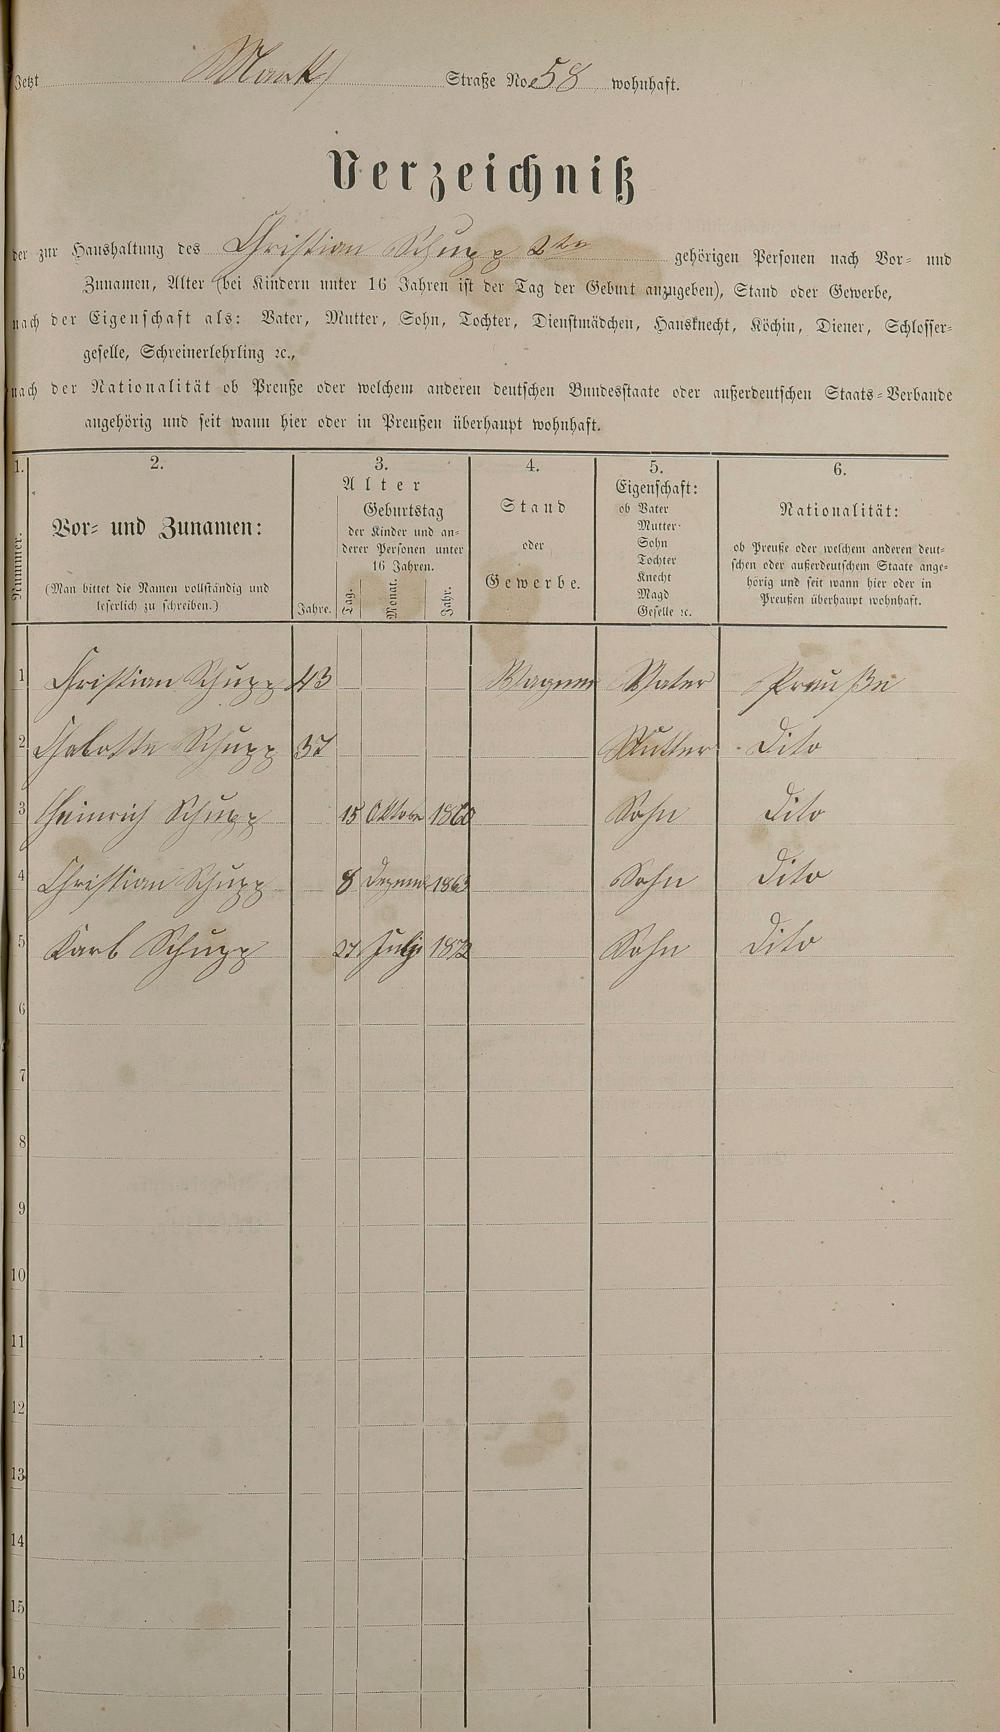 Jetzt Markt Straße No. 58 wohnhaft.
Verzeichniß
der zur Haushaltung des Christian Schupp 2ter gehörigen Personen nach Vor- und
Zunamen, Alter (bei Kindern unter 16 Jahren ist der Tag der Geburt anzugeben), Stand oder Gewerbe,
nach der Eigenschaft als: Vater, Mutter, Sohn, Tochter, Dienstmädchen, Hausknecht, Köchin, Diener, Schlosser-
geselle, Schreinerlehrling ꝛc.,
nach der Nationalität ob Preuße oder welchem anderen deutschen Bundesstaate oder außerdeutschen Staats-Verbande
angehörig und seit wann hier oder in Preußen überhaupt wohnhaft.
1. 2. 3. 4. 5. 6.
Nummer.
Vor- und Zunamen:
(Man bittet die Namen vollständig und
leserlich zu schreiben.)
Alter
Jahre.
Geburtstag
der Kinder und an-
derer Personen unter
16 Jahren.
Tag. Monat. Jahr.
Stand
oder
Gewerbe.
Eigenschaft:
ob Vater
Mutter
Sohn
Tochter
Knecht
Magd
Geselle ꝛc.
Nationalität:
ob Preuße oder welchem anderen deut-
schen oder außerdeutschem Staate ange-
hörig und seit wann hier oder in
Preußen überhaupt wohnhaft.
1 Christian Schupp 43 Wagner Vater Preuße
2 Schupp 37 Mutter Dito
3 Heinrich Schupp 15 Oktober 1860 Sohn Dito
4 Christian Schupp 8 Dezemb 1863 Sohn Dito
5 Karl Schupp 27 July 1872 Sohn Dito
6
7
8
9
10
11
12
13
14
15
16